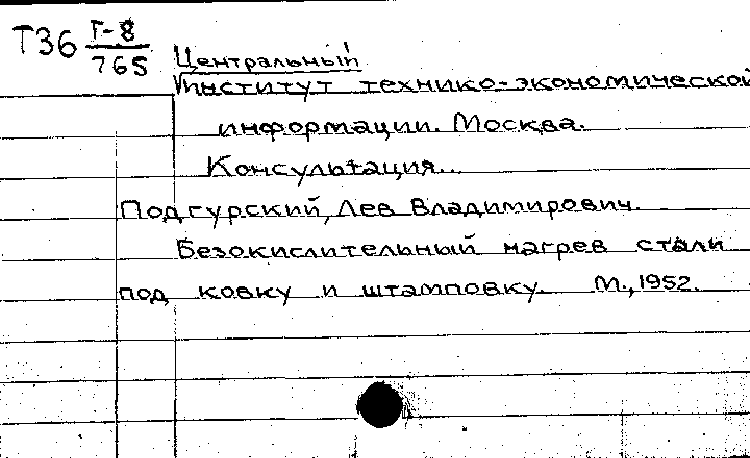 Т36 Г-8
765
Центральный
Институт технико-экономической
информации. Москва.
Консультация...
Подгурский, Лев Владимирович.
Безокислительный нагрев стали
под ковку и штамповку. М., 1952.